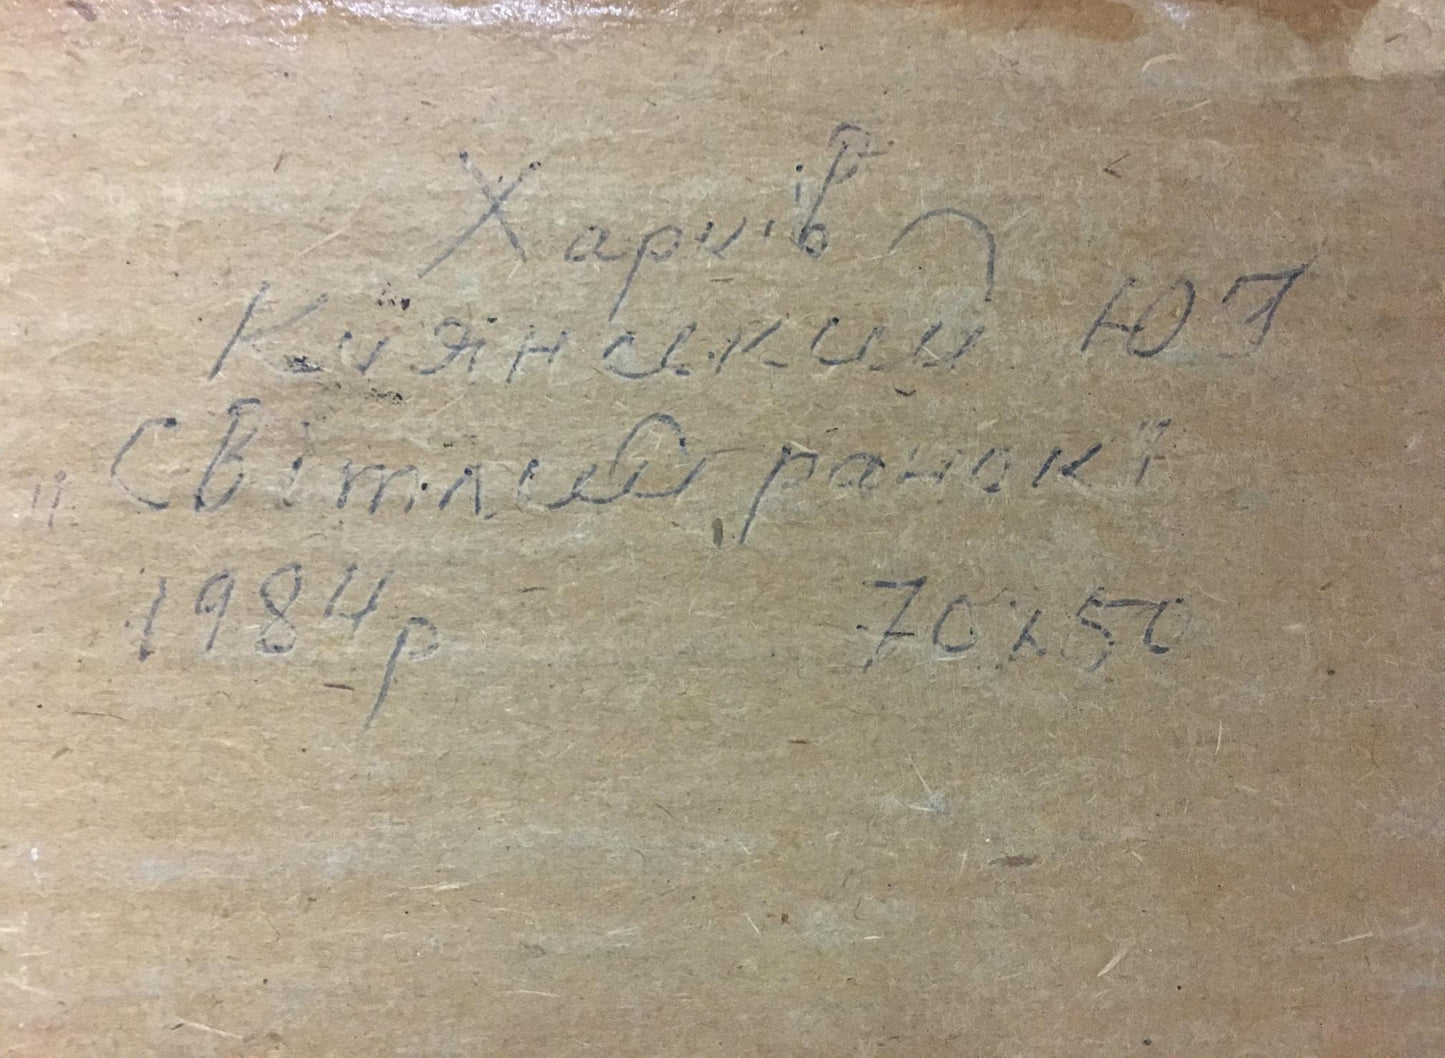 Харків
Киянський Ю
„Світлий ранок"
1984р 70х50